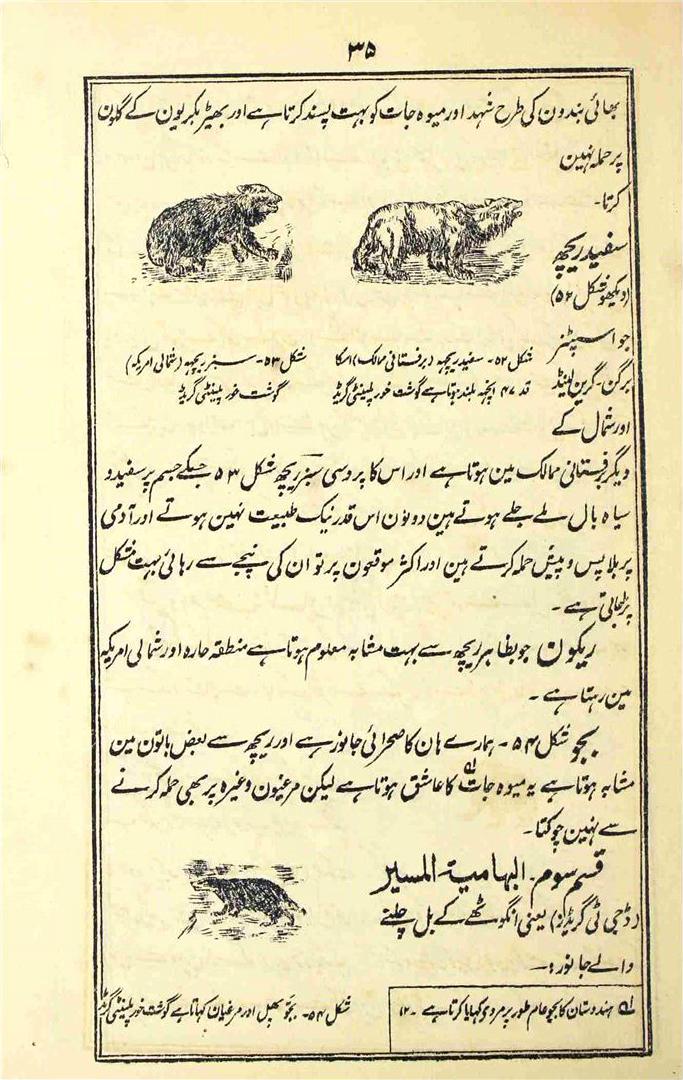 ۳۵
بھائی بندون کی طرح شہد اور میوہ جات کو بہت پسند کرتا ہے اور بھیڑ بکریون کے گلون
پر حملہ نہین
کرتا۔
سفید ریچھ
(دیکھو شکل ۵۲)
جو اسپٹنز
برگن۔ گرین لینڈ
اور شمال کے
شکل ۵۲۔ سفید ریچھ (برفستانی ممالک) اسکا
قد ۴۷ انچہ بلند ہوتا ہے گوشت خور پلینٹی گریڈ
شکل ۵۳۔ سبز ریچھ (شمالی امریکہ)
گوشت خور پلینٹی گریڈ
دیگر برفستانی ممالک مین ہوتا ہے اور اس کا پروسی سبز ریچھ شکل ۵۳ جسکے جسم پر سفید و
سیاہ بال ملے جلے ہوتے ہین دونون اس قدر نیک طبیعت نہین ہوتے اور آدمی
پر بلا پس و پیش حملہ کرتے ہین اور اکثر موقعون پر تو ان کی پنجے سے رہائی بہت مشکل
پڑجاتی ہے۔
ریکون جو بظاہر ریچھ سے بہت مشابہ معلوم ہوتا ہے منطقہ حارہ اور شمالی امریکہ
مین رہتا ہے۔
بجو شکل ۵۴۔ ہمارے ہان کا صحرائی جانور ہے اور ریچھ سے بعض باتون مین
مشابہ ہوتا ہے یہ میوہ جات لہ کا عاشق ہوتا ہے لیکن مرغیون وغیرہ پر بھی حملہ کرنے
سے نہین چوکتا۔
قسم سوم۔ البہامیۃ المسیر
(ڈجی ٹی گریڈز) یعنی انگوٹھے کے بل چلنے
والے جانور:۔
لہ ہندوستان کا بجو عام طور پر مردی کہایا کرتا ہے۔ ۱۲
شکل ۵۴۔ بجو پھل اور مرغیان کہاتا ہے گوشت خور پلینٹی گریڈ